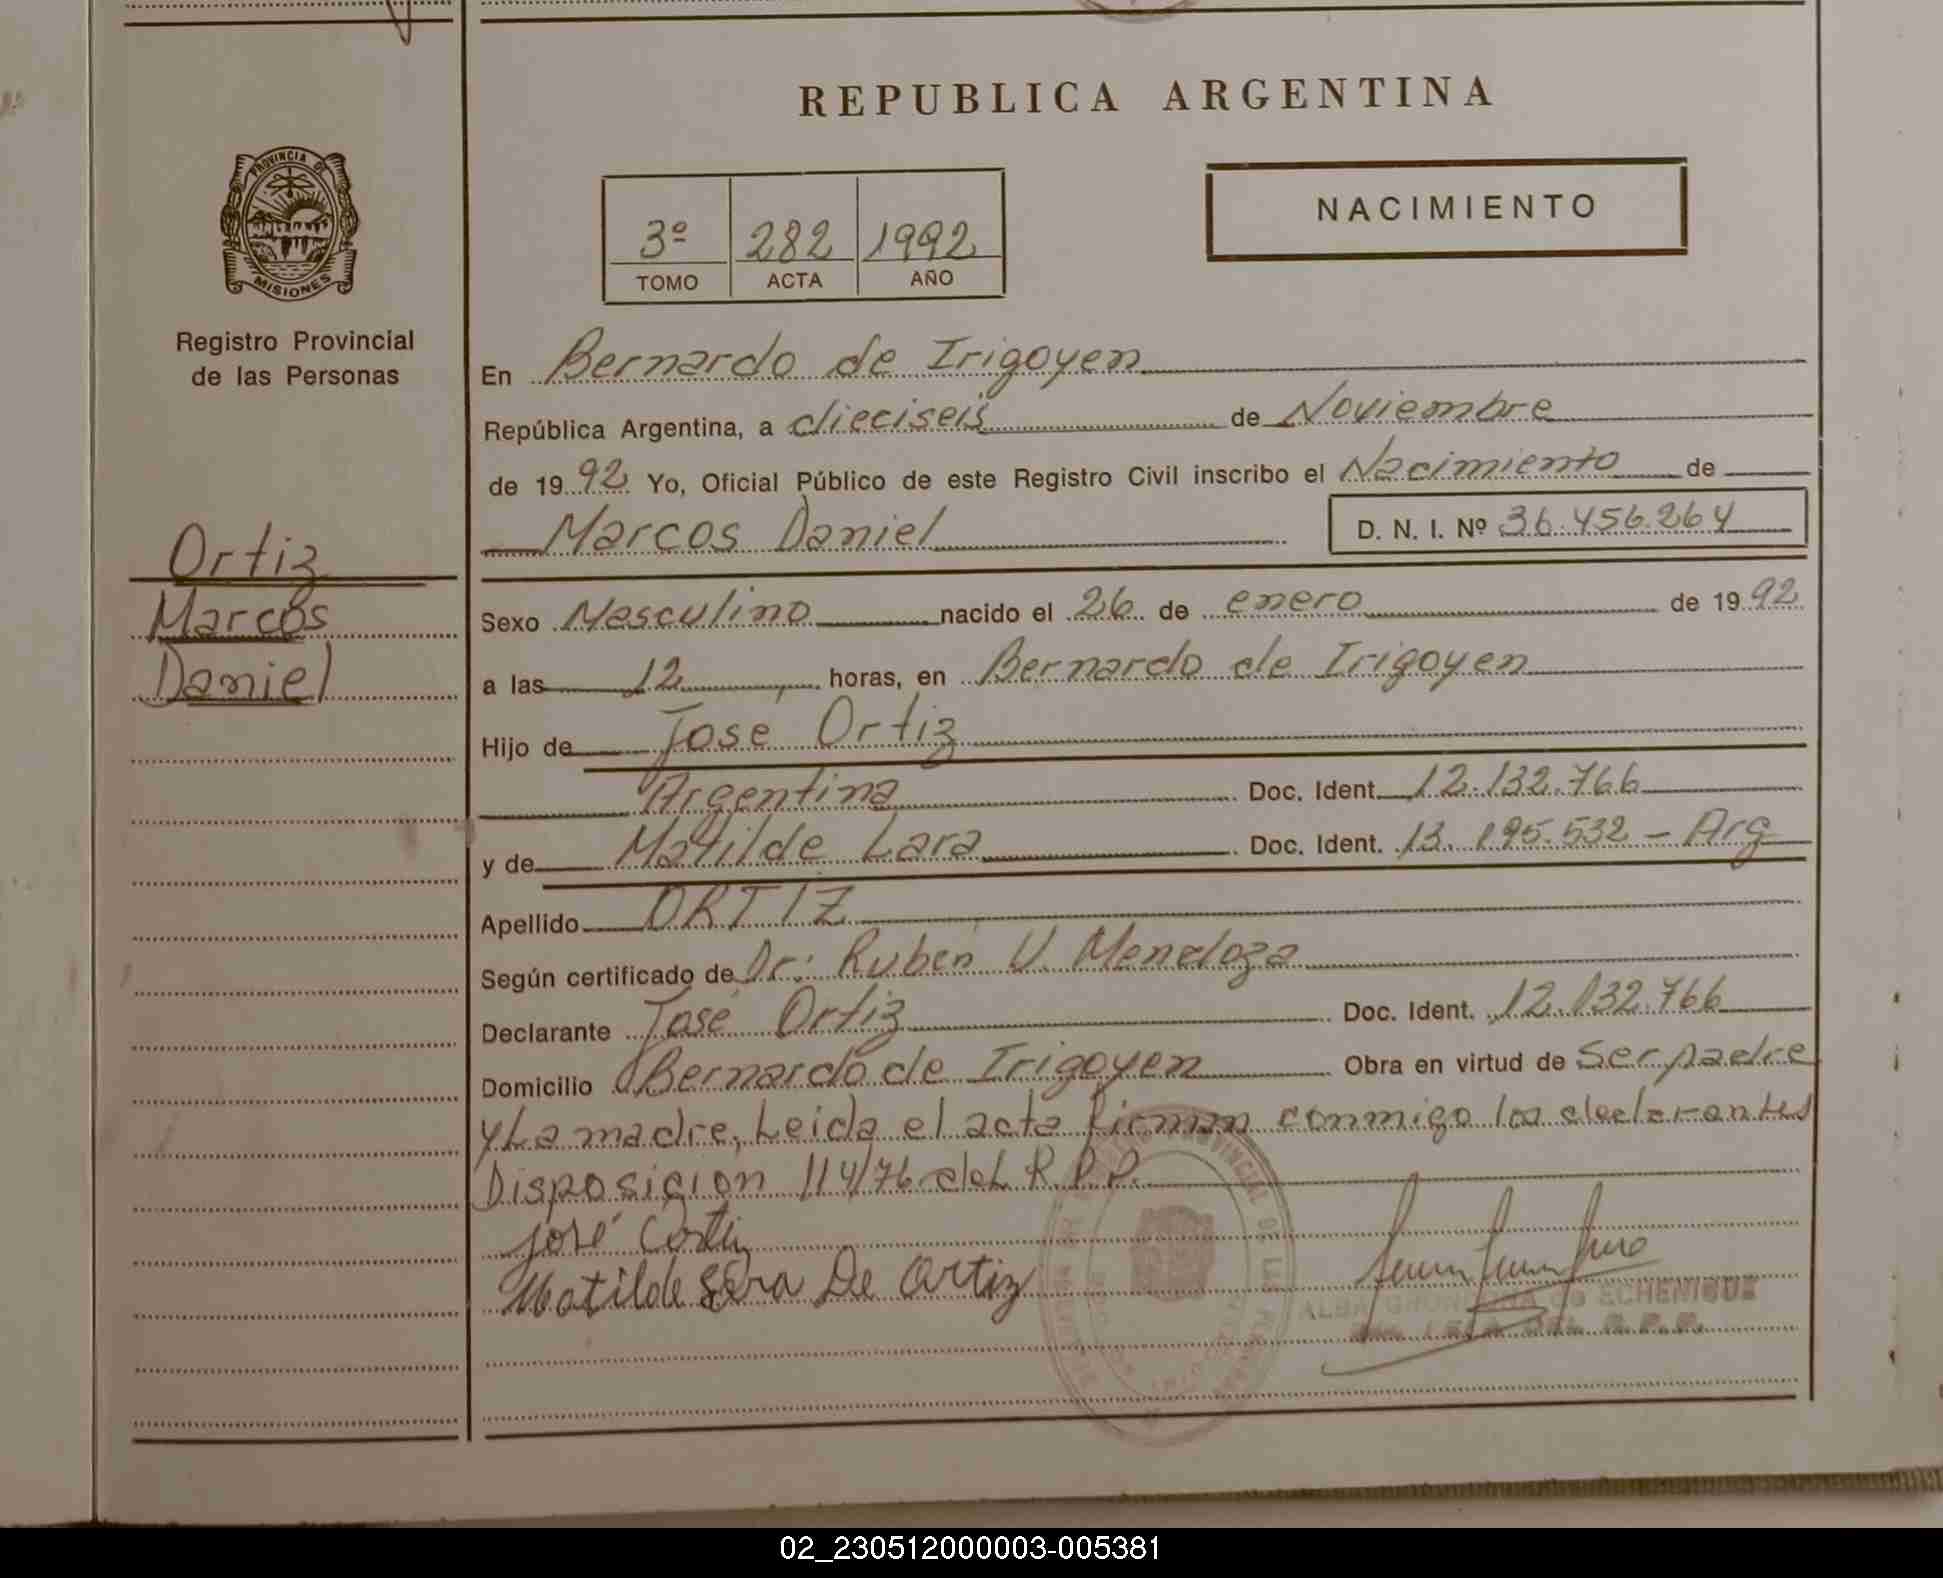 REPUBLICA ARGENTINA
PROVINCIA DE
MISIONES
Registro Provincial
de las Personas
NACIMIENTO
3º 282 1992
TOMO ACTA AÑO
En Bernardo de Irigoyen
República Argentina, a dieciseis de Noviembre
de 1992 Yo, Oficial Público de este Registro Civil inscribo el Nacimiento de
Marcos Daniel D. N. I. Nº 36.456.264
Ortiz
Marcos
Daniel
Sexo Masculino nacido el 26 de enero de 1992
a las 12 horas, en Bernardo de Irigoyen
Hijo de José Ortiz
Argentina Doc. Ident. 12.132.766
y de Matilde Lara Doc. Ident. 13.195.532 - Arg
Apellido ORTIZ
Según certificado de Dr: Ruben V. Mendoza
Declarante José Ortiz Doc. Ident. 12.132.766
Domicilio Bernardo de Irigoyen Obra en virtud de Ser padre
y La madre, Leida el acta firman conmigo los declarantes
Disposicion 114/76 del R.P.P.
José Ortiz
Matilde Lara De Ortiz
ECHENIQUE
02_230512000003-005381